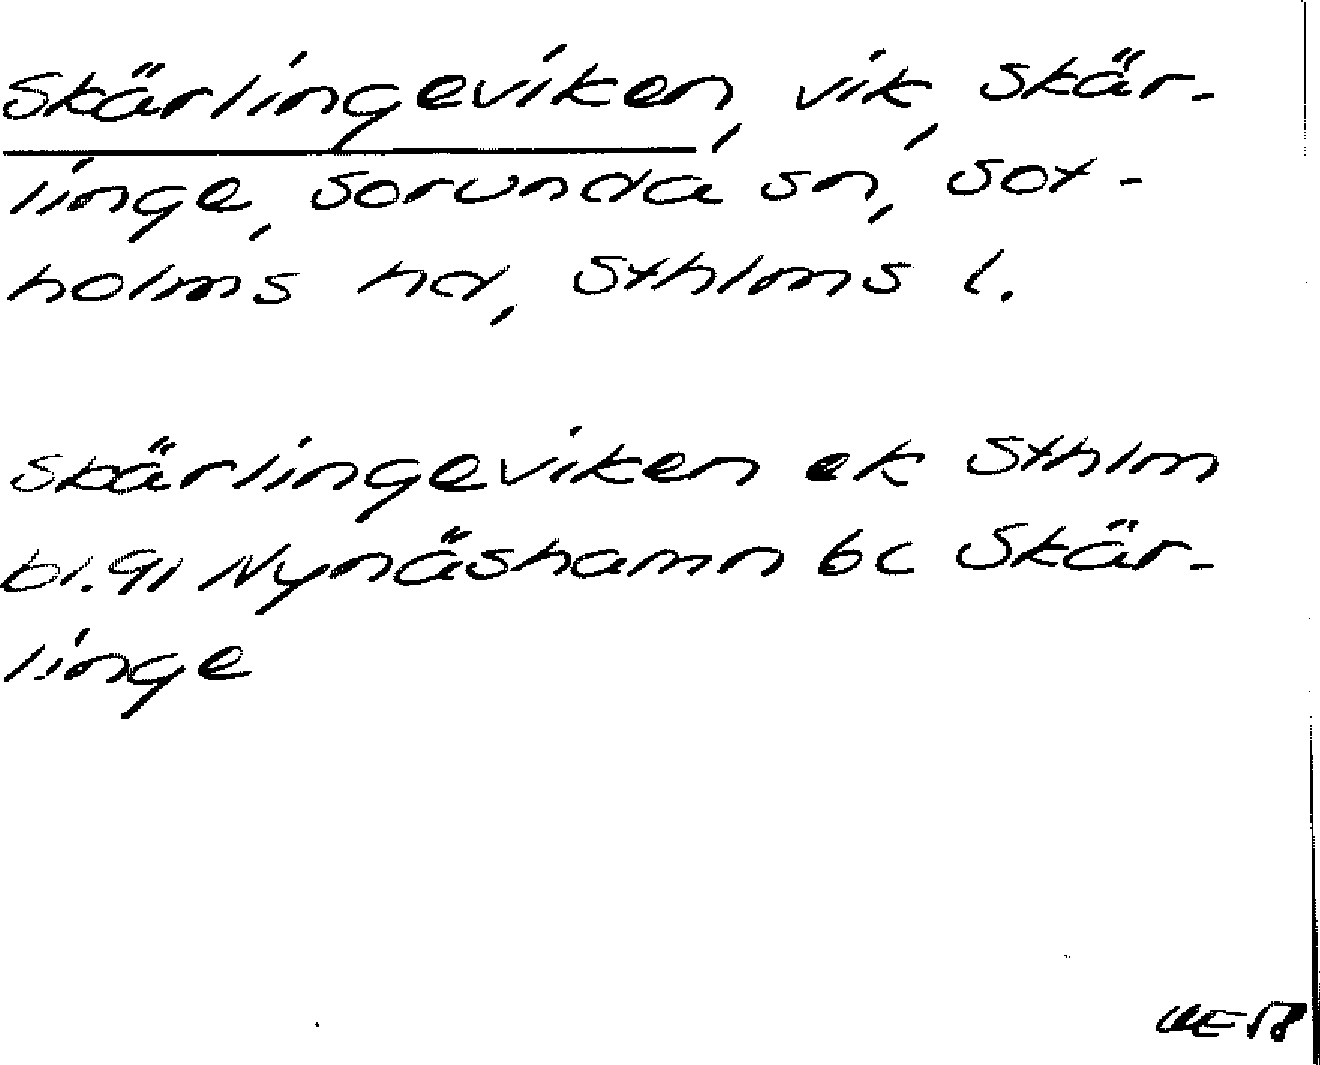 Skärlingeviken, vik, Skär-
linge, Sorunda sn, Sot-
holms hd, Sthlms l.
Skärlingeviken ek Sthlm
bl. 91 Nynäshamn bc Skär-
linge